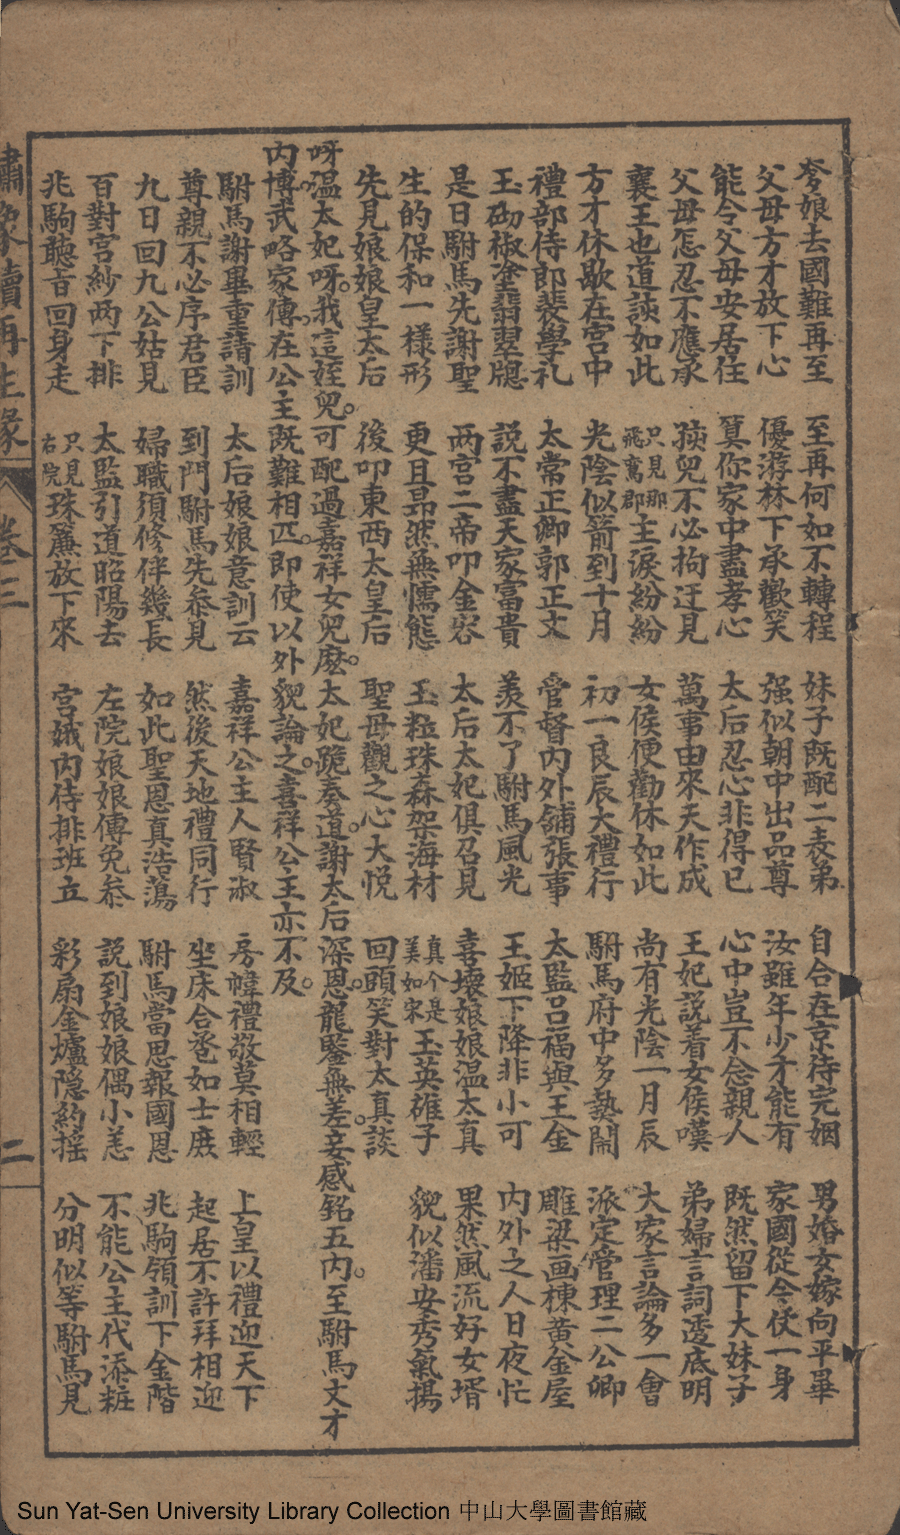 爹娘去國難再至　至再何如不轉程　妹子既配二表弟　自合在京待完姻　男婚女嫁向平畢
父母方才放下心　優游林下承歡笑　强似朝中出品尊　汝雖年少才能有　家國從今仗一身
能令父母安居住　算你家中盡孝心　太后忍心非得已　心中豈不念親人　既然留下大妹子
父母怎忍不應承　孩兒不必拘迂見　萬事由來天作成　王妃説着女侯嘆　弟婦言詞透底明
襄王也道談如此　只見那飛鸞郡主淚紛紛　女侯便勸休如此　尚有光陰一月辰　大家言論多一會
方才休歇在宮中　光陰似箭到十月　初一良辰大禮行　駙馬府中多熱閙　派定管理二公卿
禮部侍郎裴學礼　太常正卿郭正文　管督內外鋪張事　太監呂福與王金　雕梁画棟黄金屋
玉砌椒塗翡翠牕　説不盡天家富貴　羨不了駙馬風光　王姬下降非小可　内外之人日夜忙
是日駙馬先謝聖　兩宮二帝叩金容　太后太妃俱召見　喜壞娘娘温太真　果然風流好女壻
生的保和一樣形　更且昂然無懦態　玉粒珠森架海材　真个是美如宋玉英雄子　貌似潘安秀氣揚
先見娘娘皇太后　後叩東西太皇后　聖母觀之心大悦　回頭笑對太真談
呀温太妃呀。我這姪兒。可配過嘉祥女兒麽。太妃跪奏道。謝太后深恩。龍鑒無差。妾感銘五内。至駙馬文才
内博。武略家傳。在公主既難相匹。即使以外貌論之。喜祥公主亦不及。
駙馬謝畢重請訓　太后娘娘意訓云　嘉祥公主人賢淑　房幃禮敬莫相輕　上皇以禮迎天下
尊親不必序君臣　到門駙馬先叅見　然後天地禮同行　坐床合卺如士庶　起居不許拜相迎
九日回九公姑見　婦職須修伴幾長　如此聖恩真浩蕩　駙馬當思報國恩　兆駒領訓下金階
百對宮紗两下排　太監引道昭陽去　左院娘娘傳免叅　説到娘娘偶小恙　不能公主代添粧
兆駒聽旨回身走　只見右院珠簾放下來　宮娥内侍排班立　彩扇金爐隱約揺　分明似等駙馬見
繡像續再生緣　卷三　二
Sun Yat-Sen University Library Collection 中山大學圖書館藏